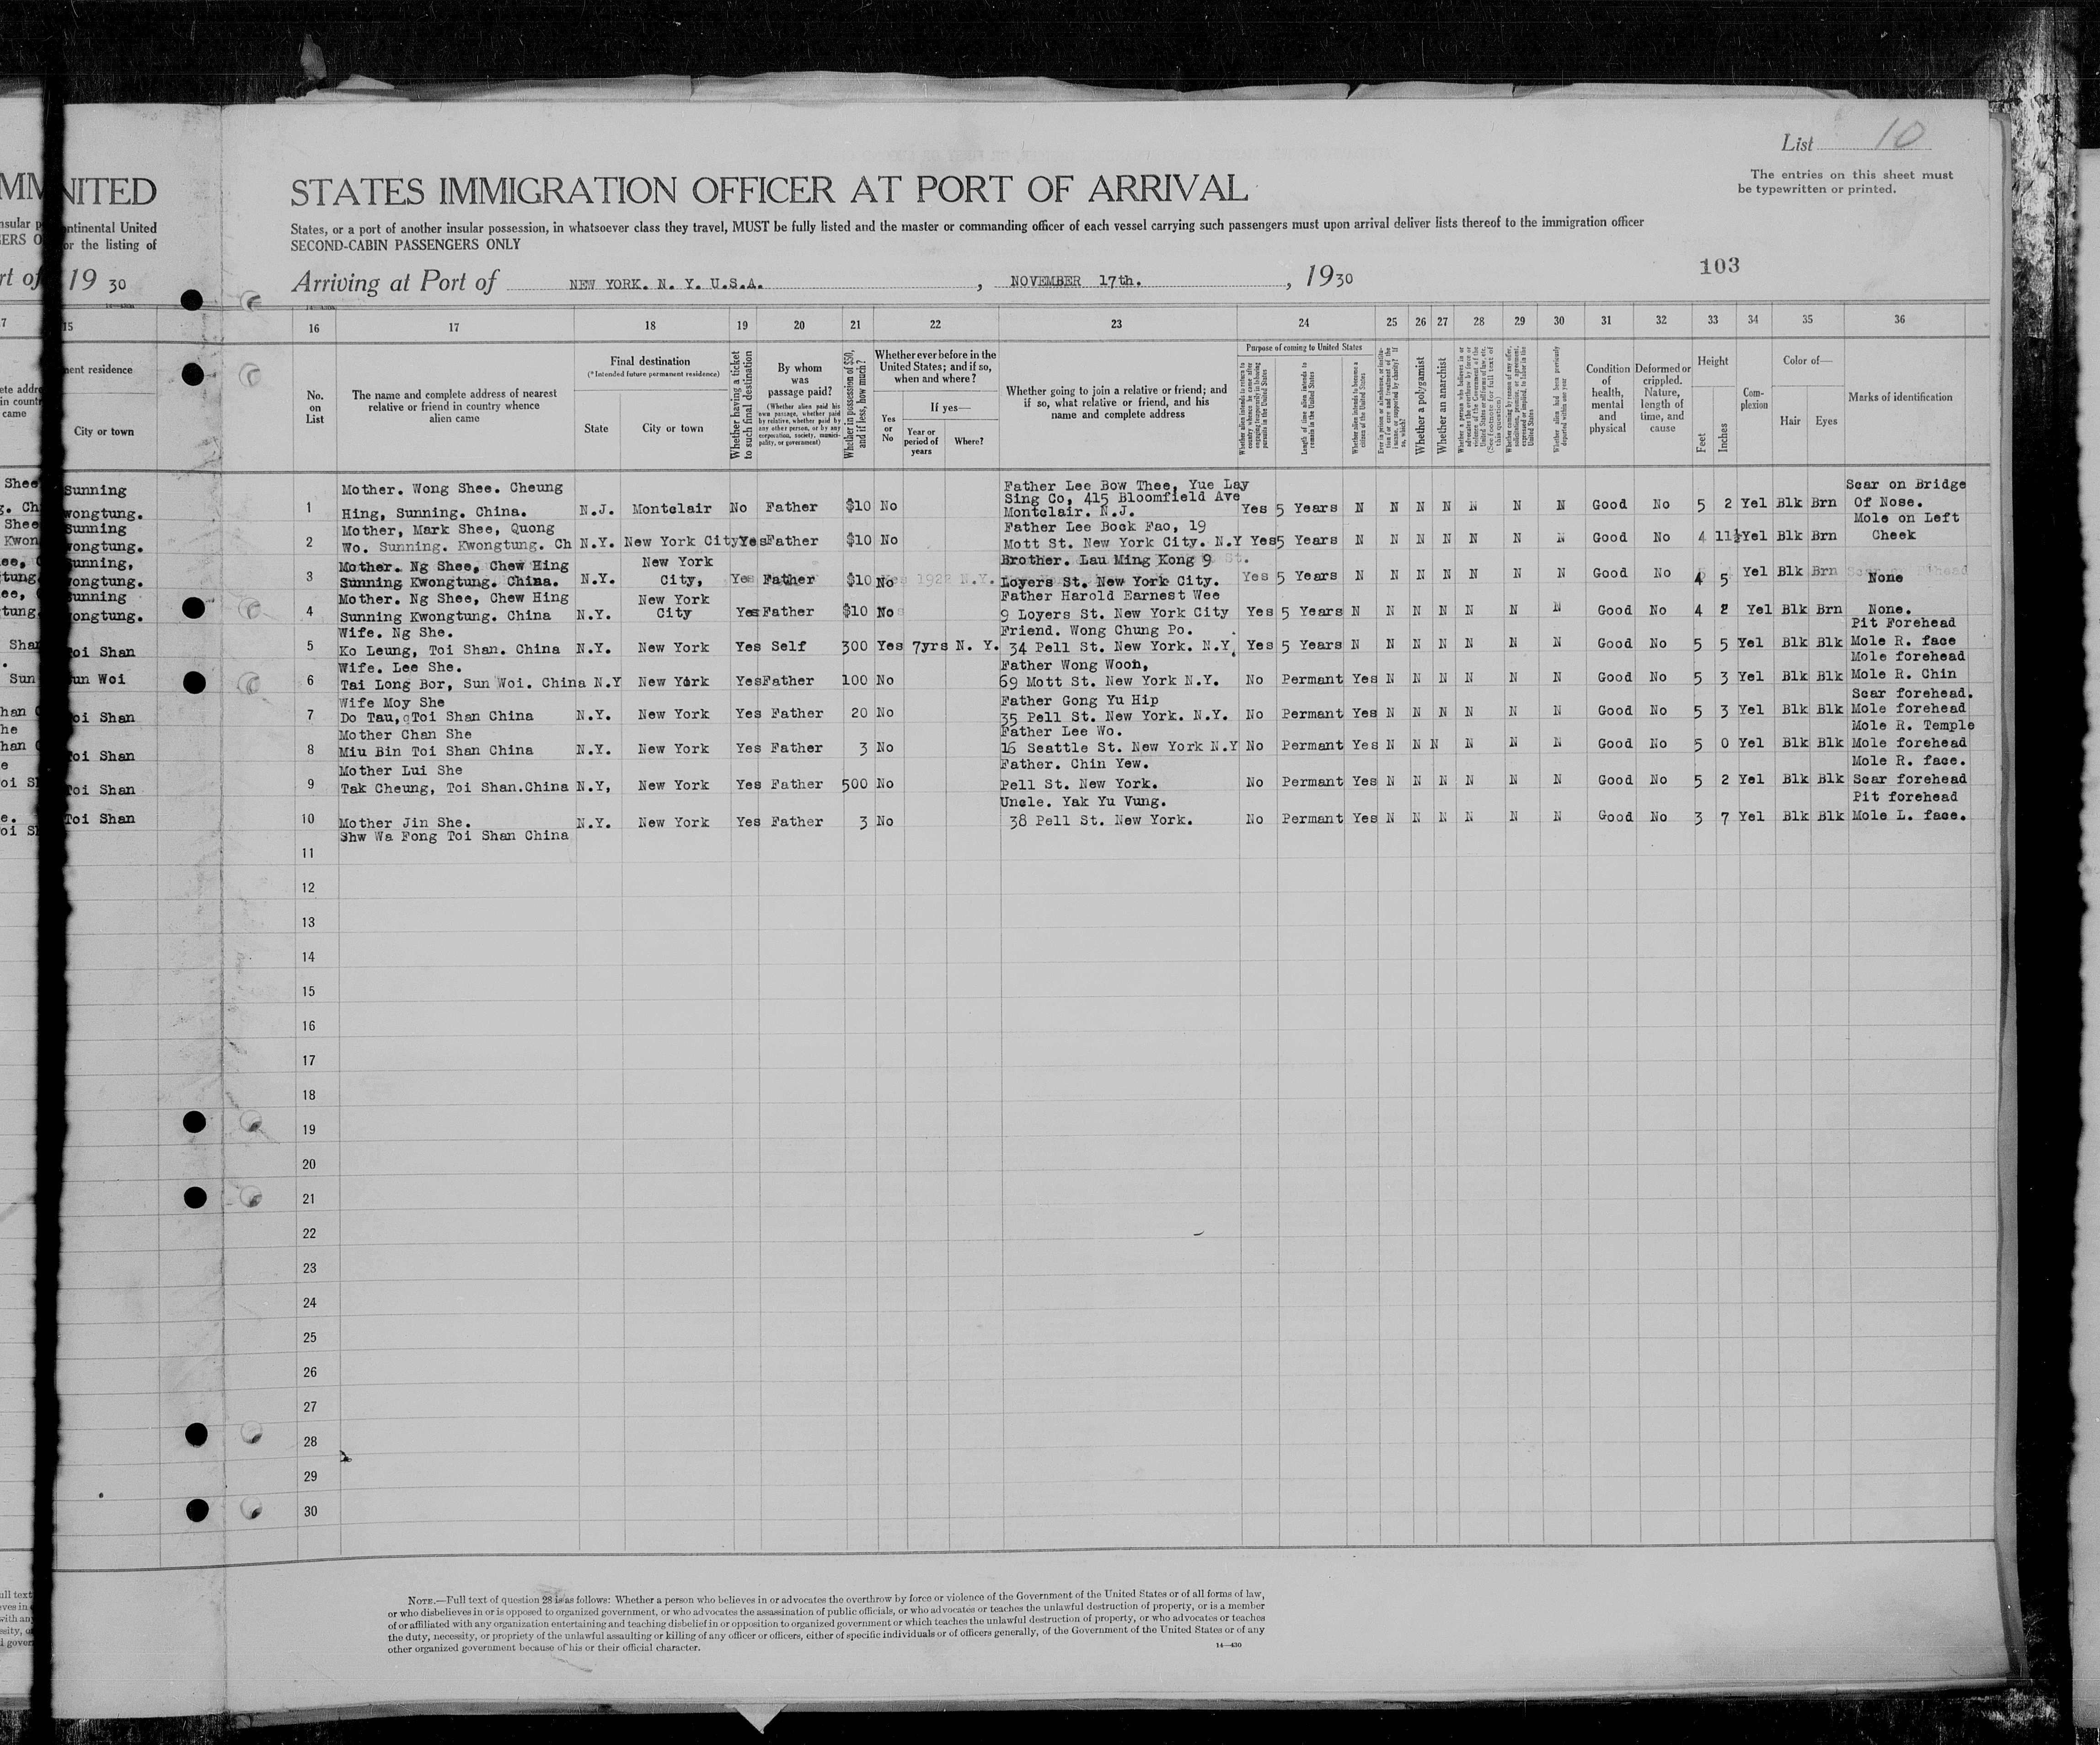 List 10
The entries on this sheet must
be typewritten or printed.
NITED STATES IMMIGRATION OFFICER AT PORT OF ARRIVAL
ntinental United States, or a port of another insular possession, in whatsoever class they travel, MUST be fully listed and the master or commanding officer of each vessel carrying such passengers must upon arrival deliver lists thereof to the immigration officer
or the listing of SECOND-CABIN PASSENGERS ONLY
103
19 30 Arriving at Port of NEW YORK. N. Y. U.S.A. , NOVEMBER 17th. , 1930
15 16 17 18 19 20 21 22 23 24 25 26 27 28 29 30 31 32 33 34 35 36
ent residence
City or town
No. on List
The name and complete address of nearest relative or friend in country whence alien came
Final destination
(*Intended future permanent residence)
State
City or town
Whether having a ticket to such final destination
By whom was passage paid?
(Whether alien paid his own passage, whether paid by relative, whether paid by any other person, or by any corporation, society, municipality, or government)
Whether in possession of $50, and if less, how much?
Whether ever before in the United States; and if so, when and where?
Yes or No
If yes—
Year or period of years
Where?
Whether going to join a relative or friend; and if so, what relative or friend, and his name and complete address
Purpose of coming to United States
Length of time alien intends to remain in the United States
Whether alien intends to become a citizen of the United States
Whether a polygamist
Whether an anarchist
Condition of health, mental and physical
Deformed or crippled. Nature, length of time, and cause
Height
Feet
Inches
Complexion
Color of—
Hair
Eyes
Marks of identification
Sunning wongtung. 1 Mother. Wong Shee. Cheung Hing, Sunning. China. N.J. Montclair No Father $10 No Father Lee Bow Thee, Yue Lay Sing Co, 415 Bloomfield Ave Montclair. N.J. Yes 5 Years N N N N N N N Good No 5 2 Yel Blk Brn Scar on Bridge Of Nose.
Sunning wongtung. 2 Mother, Mark Shee, Quong Wo. Sunning. Kwongtung. Ch N.Y. New York City Yes Father $10 No Father Lee Bock Fao, 19 Mott St. New York City. N.Y Yes 5 Years N N N N N N N Good No 4 11½ Yel Blk Brn Mole on Left Cheek
unning, ongtung. 3 Mother. Ng Shee, Chew Hing Sunning Kwongtung. China. N.Y. New York City, Yes Father $10 No Brother. Lau Ming Kong 9 Loyers St. New York City. Yes 5 Years N N N N N N N Good No 4 5 Yel Blk Brn None
unning ongtung. 4 Mother. Ng Shee, Chew Hing Sunning Kwongtung. China N.Y. New York City Yes Father $10 No Father Harold Earnest Wee 9 Loyers St. New York City Yes 5 Years N N N N N N N Good No 4 2 Yel Blk Brn None.
oi Shan 5 Wife. Ng She. Ko Leung, Toi Shan. China N.Y. New York Yes Self 300 Yes 7yrs N. Y. Friend. Wong Chung Po. 34 Pell St. New York. N.Y, Yes 5 Years N N N N N N N Good No 5 5 Yel Blk Blk Pit Forehead Mole R. face
un Woi 6 Wife. Lee She. Tai Long Bor, Sun Woi. China N.Y New York Yes Father 100 No Father Wong Wooh, 69 Mott St. New York N.Y. No Permant Yes N N N N N N Good No 5 3 Yel Blk Blk Mole forehead Mole R. Chin
oi Shan 7 Wife Moy She Do Tau, Toi Shan China N.Y. New York Yes Father 20 No Father Gong Yu Hip 35 Pell St. New York. N.Y. No Permant Yes N N N N N N Good No 5 3 Yel Blk Blk Scar forehead. Mole forehead
oi Shan 8 Mother Chan She Miu Bin Toi Shan China N.Y. New York Yes Father 3 No Father Lee Wo. 16 Seattle St. New York N.Y No Permant Yes N N N N N N Good No 5 0 Yel Blk Blk Mole R. Temple Mole forehead
oi Shan 9 Mother Lui She Tak Cheung, Toi Shan.China N.Y, New York Yes Father 500 No Father. Chin Yew. Pell St. New York. No Permant Yes N N N N N N Good No 5 2 Yel Blk Blk Mole R. face. Scar forehead
Toi Shan 10 Mother Jin She. Shw Wa Fong Toi Shan China N.Y. New York Yes Father 3 No Uncle. Yak Yu Vung. 38 Pell St. New York. No Permant Yes N N N N N N Good No 3 7 Yel Blk Blk Pit forehead Mole L. face.
11
12
13
14
15
16
17
18
19
20
21
22
23
24
25
26
27
28
29
30
NOTE.—Full text of question 28 is as follows: Whether a person who believes in or advocates the overthrow by force or violence of the Government of the United States or of all forms of law,
or who disbelieves in or is opposed to organized government, or who advocates the assassination of public officials, or who advocates or teaches the unlawful destruction of property, or is a member
of or affiliated with any organization entertaining and teaching disbelief in or opposition to organized government or which teaches the unlawful destruction of property, or who advocates or teaches
the duty, necessity, or propriety of the unlawful assaulting or killing of any officer or officers, either of specific individuals or of officers generally, of the Government of the United States or of any
other organized government because of his or their official character.
14—430